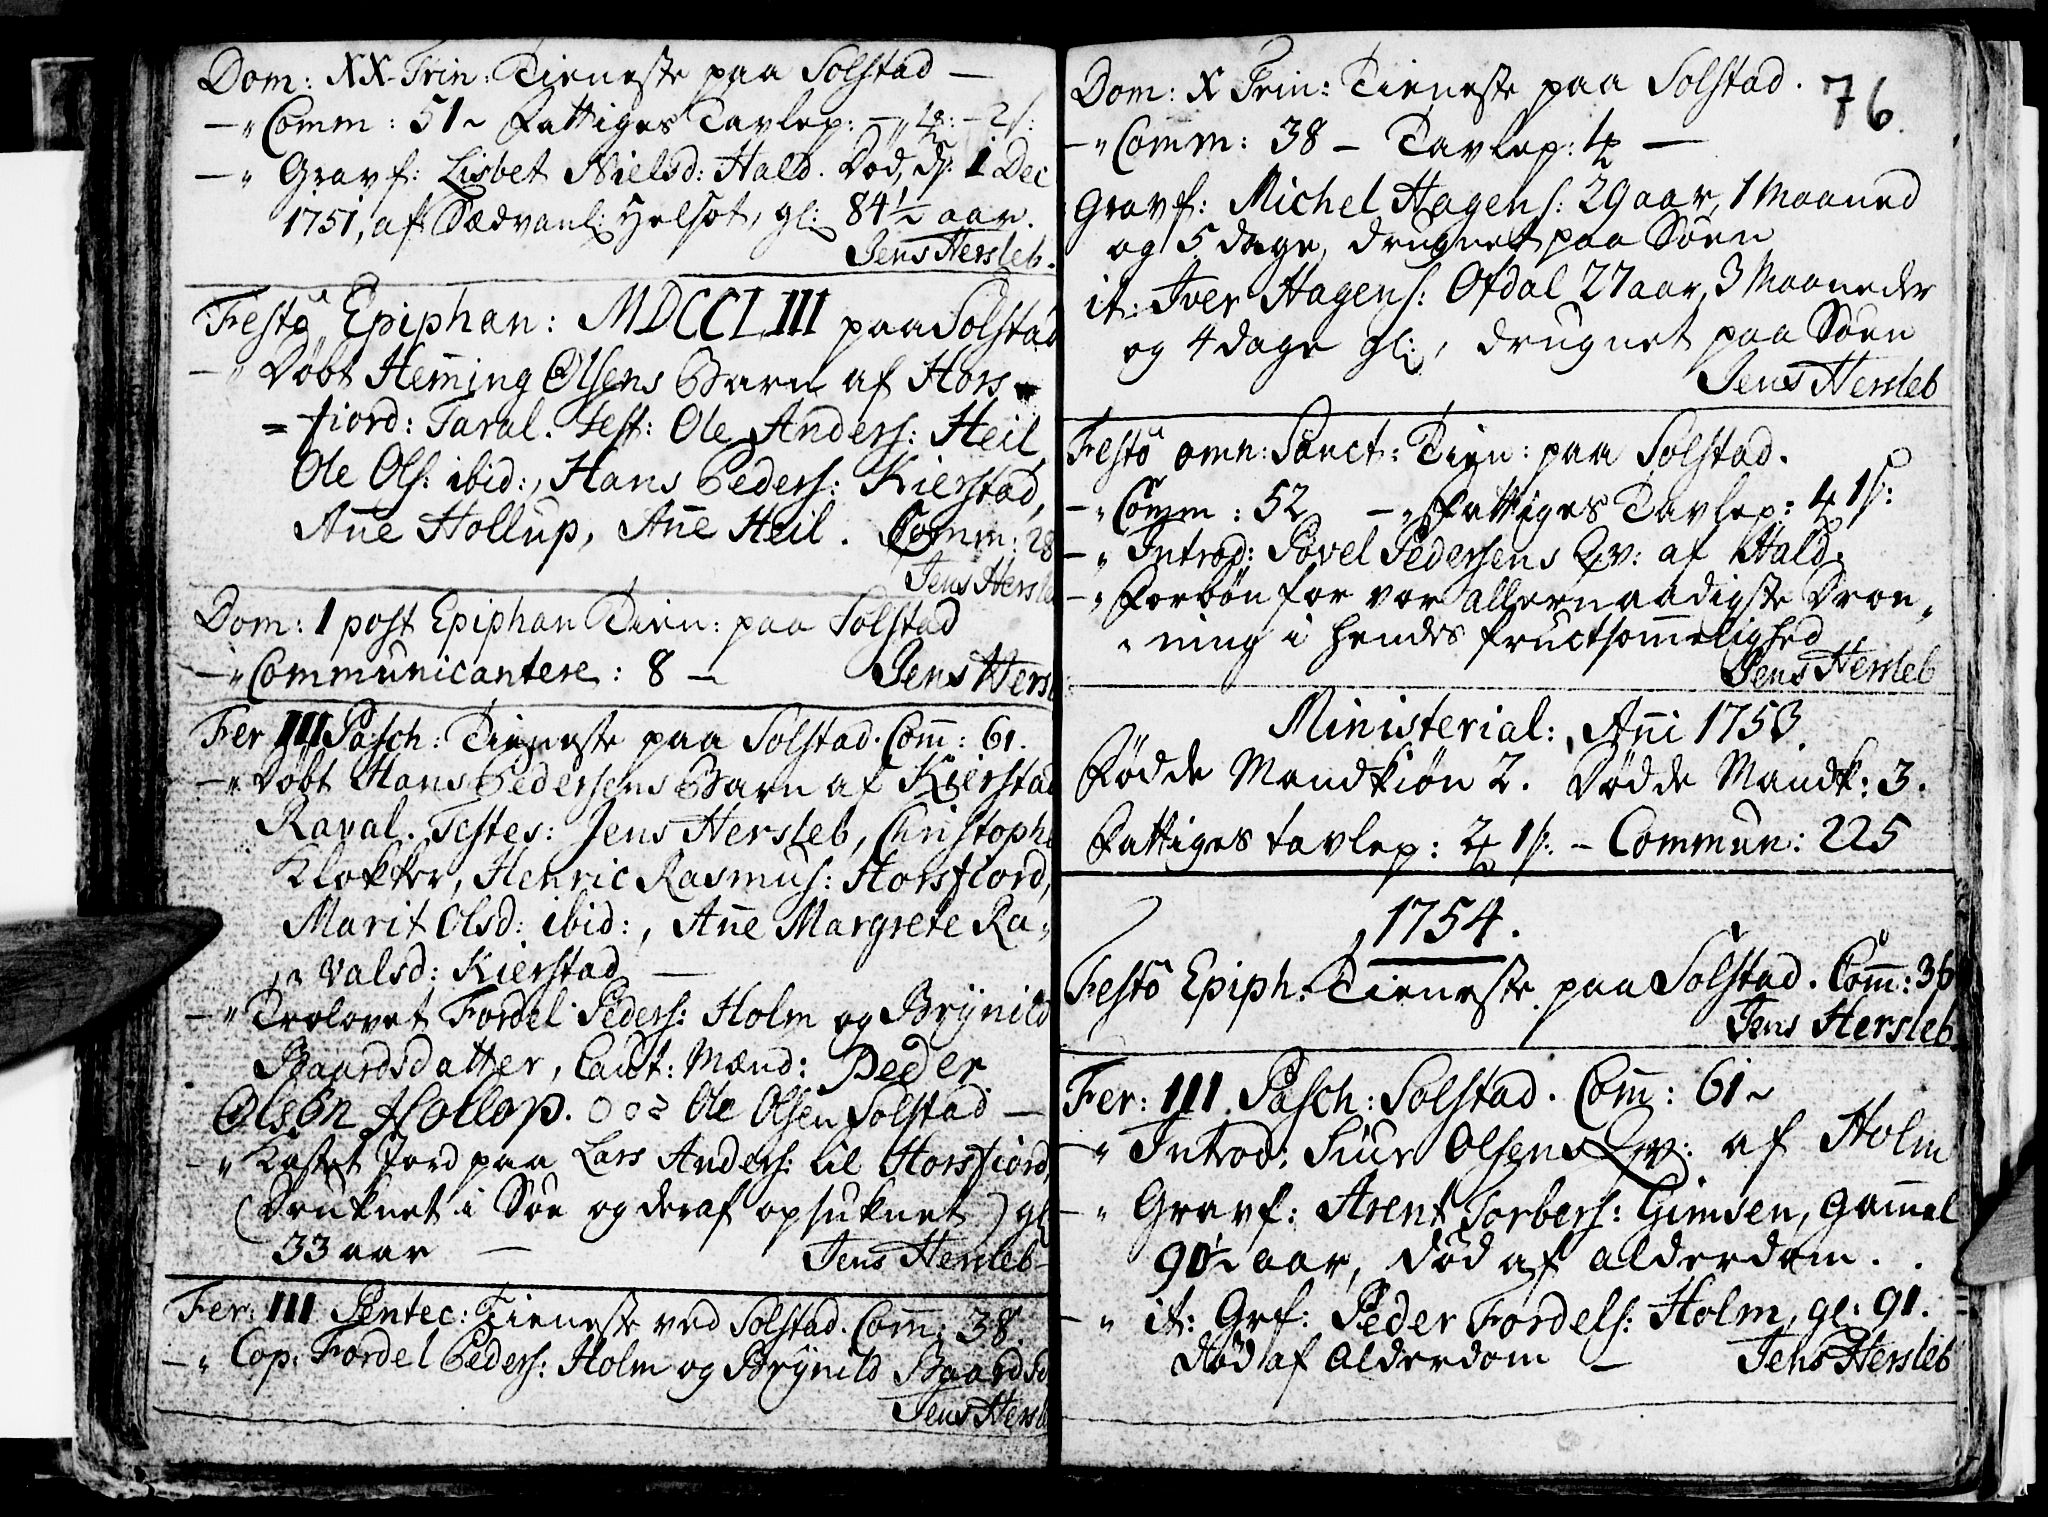 Dom: XX Trin: Tieneste paa Solstad —
—„ Comm: 51 ~ Fattiges Tavlep:
—„ Gravf: Lisbet Nielsd: Hald. Död, d: 1 Dec
1751, af Sædvanl: Helsot, gl: 84½ aar.
Jens Hersleb.
Festo Epiphan: MDCCLIII paa Solstad
—„ Döbt Hemming Olsens Barn af Hors
= fiord: Taral. Test: Ole Anders: Heil,
Ole Ols: ibid:, Hans Peders: Kierstad,
Añe Hollup, Añe Heil. Comm: 28
Jens Hersleb
Dom: 1 post Epiphan Tien: paa Solstad
—„ Communicantere: 8 — Jens Hersl
Fer III Pasch: Tieneste paa Solstad. Com̃: 61.
—„ Döbt Hans Pedersens Barn af Kierstad
Raval. Testes: Jens Hersleb, Christopher
Klokker, Henric Rasmus: Horsfiord,
Marit Olsd: ibid:, Añe Margrete Ra-
„ valsd: Kierstad —
—„ Trolovet Fordel Peders: Holm og Brÿnild
Baardsdatter, Caut: Mænd: Peder
Olsön Hollop. Ole Olsen Solstad —
—„ Kastet Jord paa Lars Anders: til Horsfiord,
(Druknet i Söe og deraf opsuknet) gl
33 aar — Jens Hersleb
Fer: III Pentec: Tieneste ved Solstad. Com̃: 38.
—„ Cop: Fordel Peders: Holm og Brÿnild Baardsd
Jens Hersle
76
Dom: X Trin: Tieneste paa Solstad.
—„ Comm: 38 — Tavlep: 4 —
Gravf: Michel Hagens: 29 aar, 1 Maaned
og 5 dage, drugnet paa Söen
it: Iver Hagens: Ofdal 27 aar, 3 Maaneder
og 4 dage gl:, drugnet paa Söen
Jens Hersleb
Festo omn: Sanct: Tien: paa Solstad.
—„ Comm: 52 —„ Fattiges Tavlep: 4 1 s:
—„ Introd: Povel Pedersens Qv: af Hald.
—„ Forbön for vor allernaadigste Dron„
„ ning i hendes fructsom̃elighed
Jens Hersleb
Ministerial: Añi 1753.
Födde Mandkiön 2. Dödde Mandk: 3.
Fattiges tavlep: 2 1 s: — Commun: 225
1754.
Festo Epiph: Tieneste paa Solstad. Com̃: 36
Jens Hersleb
Fer: III Pasch: Solstad. Com̃: 61 ~
—„ Introd: Siur Olsens Qv: af Holm
—„ Gravf: Arent Torbers: Gimsen, gam̃el
90½ aar, död af alderdom.
—„ it: Grf: Peder Fordels: Holm, gl: 91.
död af Alderdom — Jens Hersleb